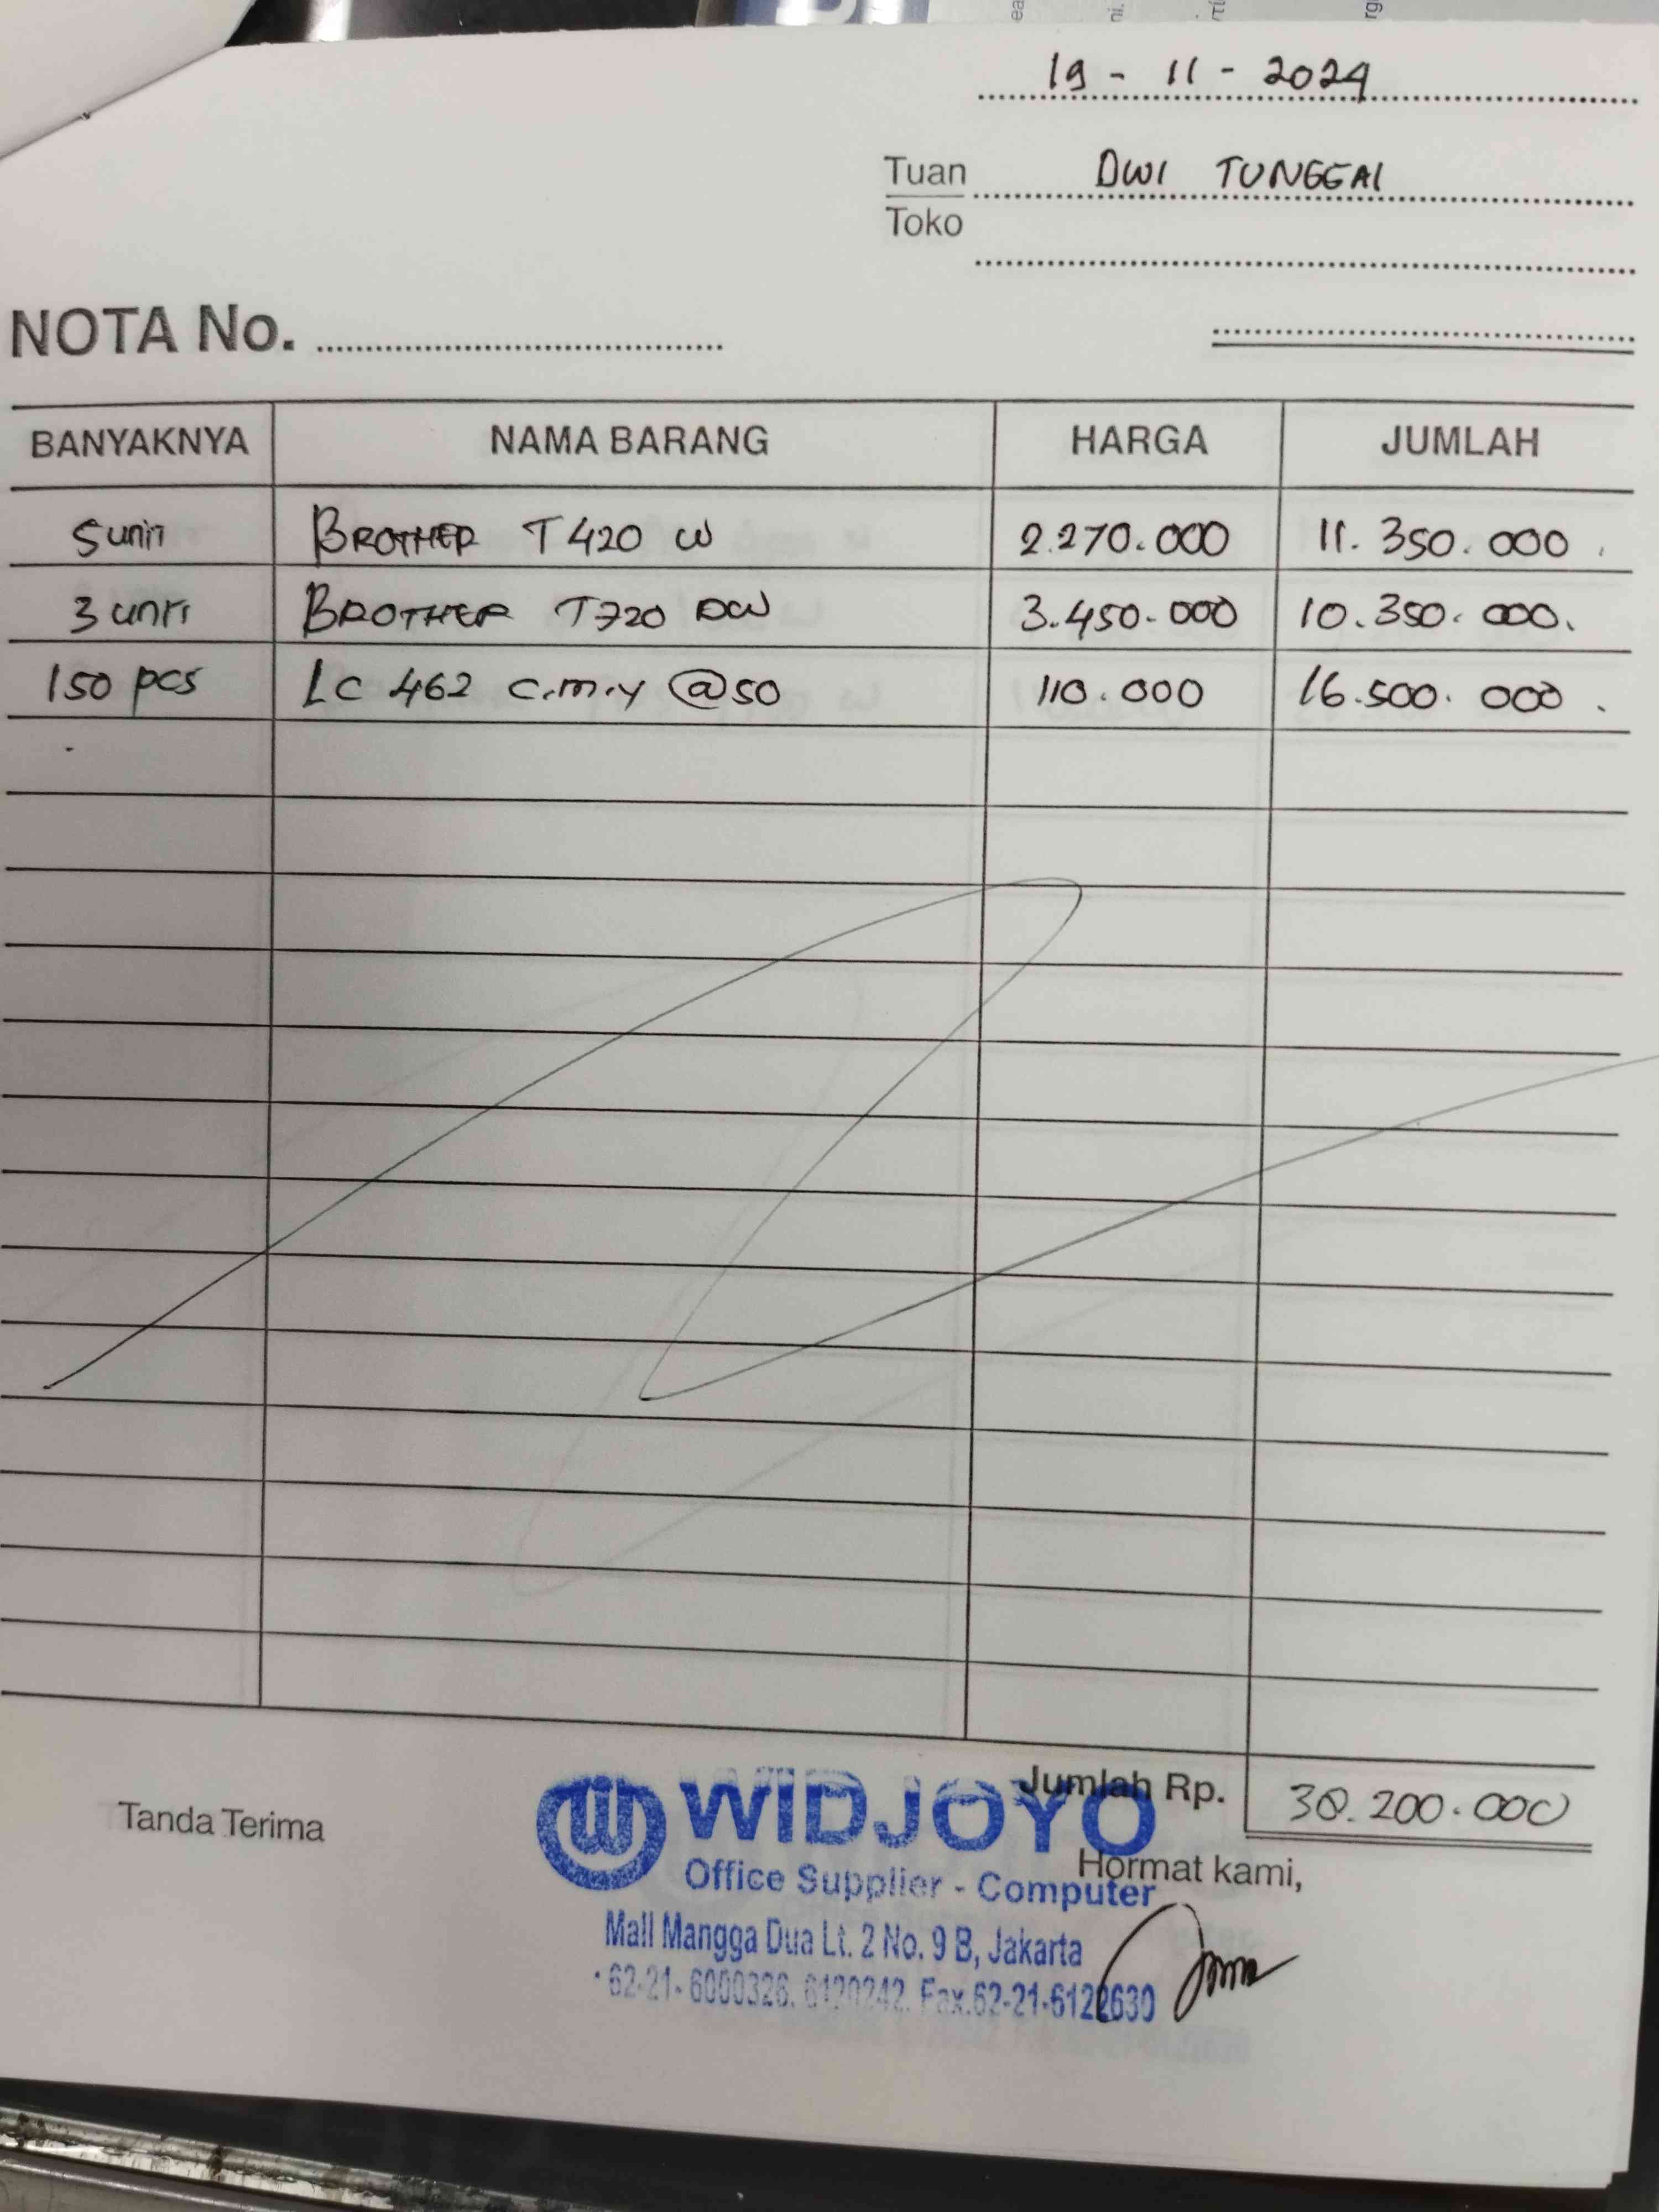 19 - 11 - 2024
Tuan DWI TUNGGAL
Toko
NOTA No.
BANYAKNYA NAMA BARANG HARGA JUMLAH
5 unit BROTHER T420 W 2.270.000 11.350.000
3 unit BROTHER T720 DW 3.450.000 10.350.000.
150 pcs LC 462 C.M.Y @50 110.000 16.500.000.
Jumlah Rp. 38.200.000
Tanda Terima
Hormat kami,
WIDJOYO
Office Supplier - Computer
Mall Mangga Dua Lt. 2 No. 9 B, Jakarta
62-21- 6000326. 6120242. Fax.62-21-6122630